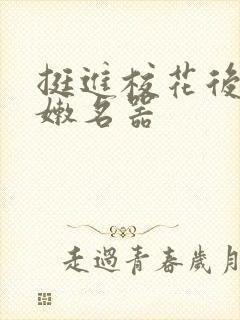 挺進校花後
嫩名器
走過青春歲月